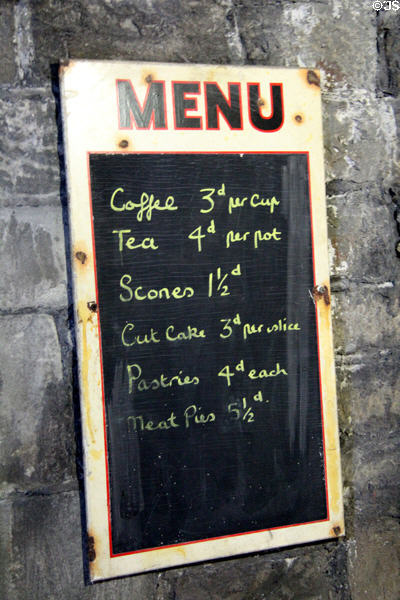 ©JS
MENU
Coffee 3d per cup
Tea 4d per pot
Scones 1½d
Cut Cake 3d per slice
Pastries 4d each
Meat Pies 5½d.